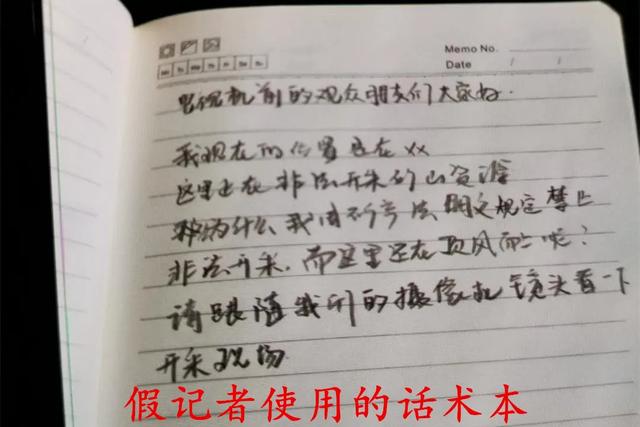 Memo No.
Date / /
电视机前的观众朋友们大家好.
我现在的位置是在xx
这里正在非法开采矿山资源
那为什么我国 法 明文规定禁止
非法开采，而这里还在顶风而上呢？
请跟随我们的摄像机镜头看一下
开采现场
假记者使用的话术本